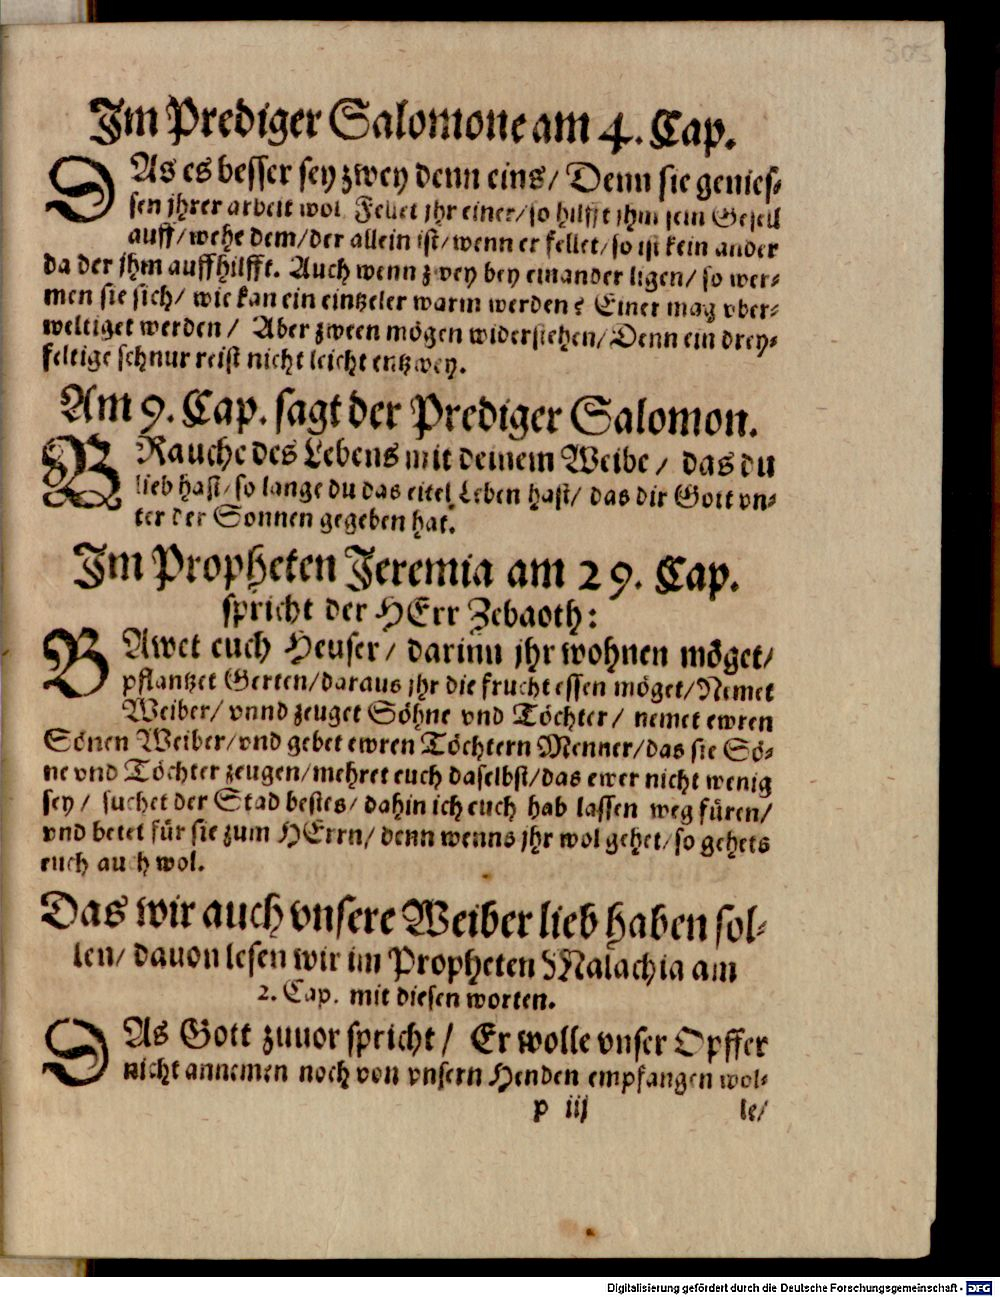 305
Im Prediger Salomone am 4. Cap.
DAs es besser sey zwey denn eins/ Denn sie genies-
sen jhrer arbeit wol Fellet jhr einer/so hilfft jhm sein Gesell
auff/wehe dem/der allein ist/wenn er fellet/so ist kein ander
da der jhm auffhilfft. Auch wenn zwey bey einander ligen/ so wer-
men sie sich/ wie kan ein eintzeler warm werden? Einer mag vber-
weltiget werden/ Aber zween mögen widerstehen/Denn ein drey-
feltige schnur reist nicht leicht entzwey.
Am 9. Cap. sagt der Prediger Salomon.
BRauche des Lebens mit deinem Weibe/ das du
lieb hast/so lange du das eitel Leben hast/ das dir Gott vn-
ter der Sonnen gegeben hat.
Im Propheten Jeremia am 29. Cap.
spricht der HErr Zebaoth:
BAwet euch Heuser/ darinn jhr wohnen möget/
pflantzet Gerten/daraus jhr die frucht essen möget/Nemet
Weiber/ vnnd zeuget Söhne vnd Töchter/ nemet ewren
Sönen Weiber/vnd gebet ewren Töchtern Menner/das sie Sö-
ne vnd Töchter zeugen/mehret euch daselbst/das ewer nicht wenig
sey/ suchet der Stad bestes/ dahin ich euch hab lassen weg füren/
vnd betet für sie zum HErrn/ denn wenns jhr wol gehet/so gehets
euch auch wol.
Das wir auch vnsere Weiber lieb haben sol-
len/ dauon lesen wir im Propheten Malachia am
2. Cap. mit diesen worten.
DAs Gott zuuor spricht/ Er wolle vnser Opffer
nicht annemen noch von vnsern Henden empfangen wol-
p iij
le/
Digitalisierung gefördert durch die Deutsche Forschungsgemeinschaft - DFG